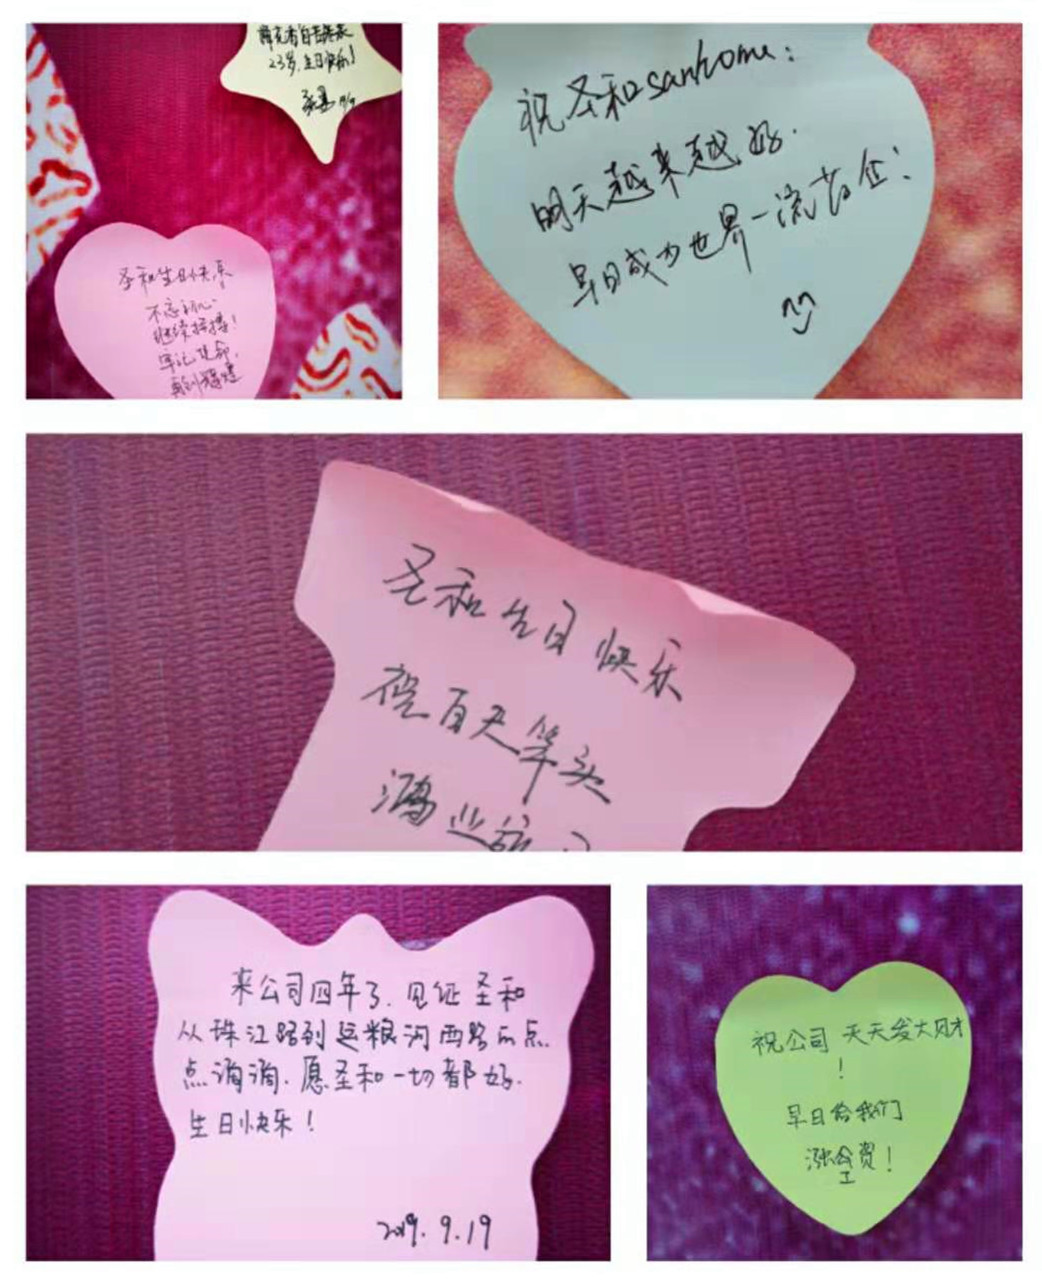 23岁,生日快乐!
圣和生日快乐
不忘初心
继续拼搏!
牢记使命,
再创辉煌
祝圣和sanhome:
明天越来越好.
早日成为世界一流药企!
圣和生日快乐
祝百尺竿头
鸿业
来公司四年了.见证圣和
从珠江路到运粮河西路的点
点滴滴.愿圣和一切都好.
生日快乐!
2019.9.19
祝公司 天天发大财
!
早日给我们
涨工资!